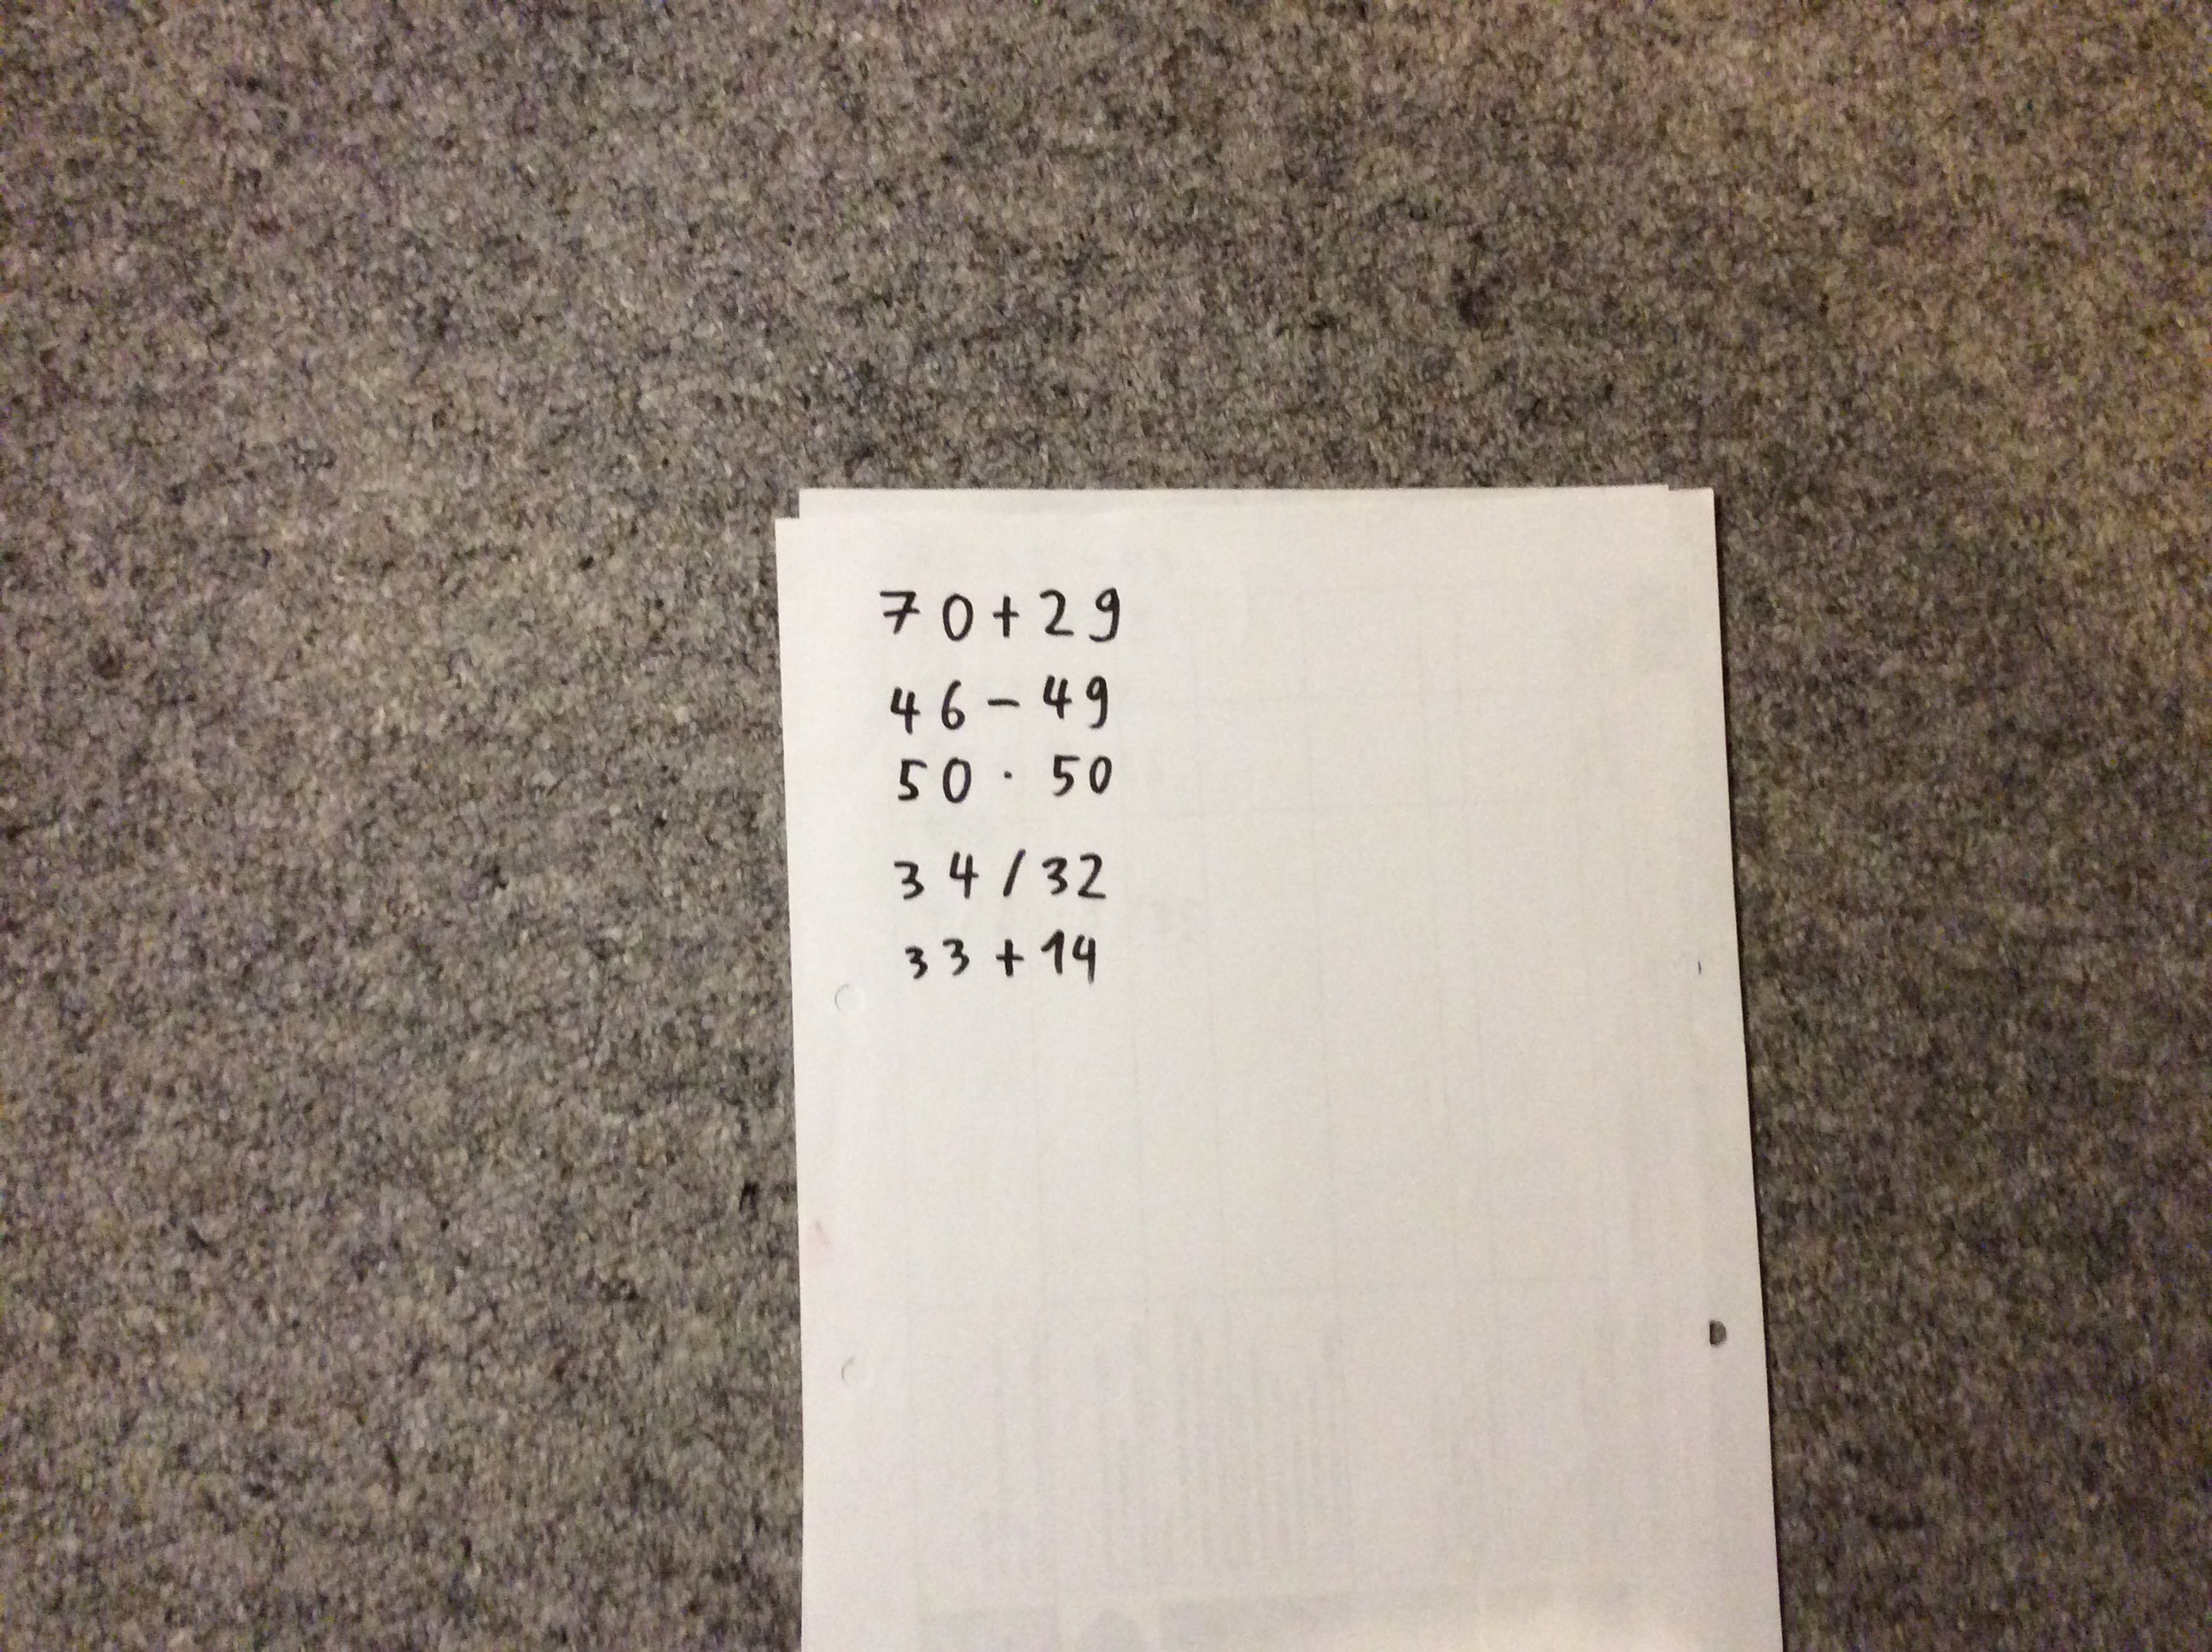 70+29
46-49
50·50
34/32
33+14